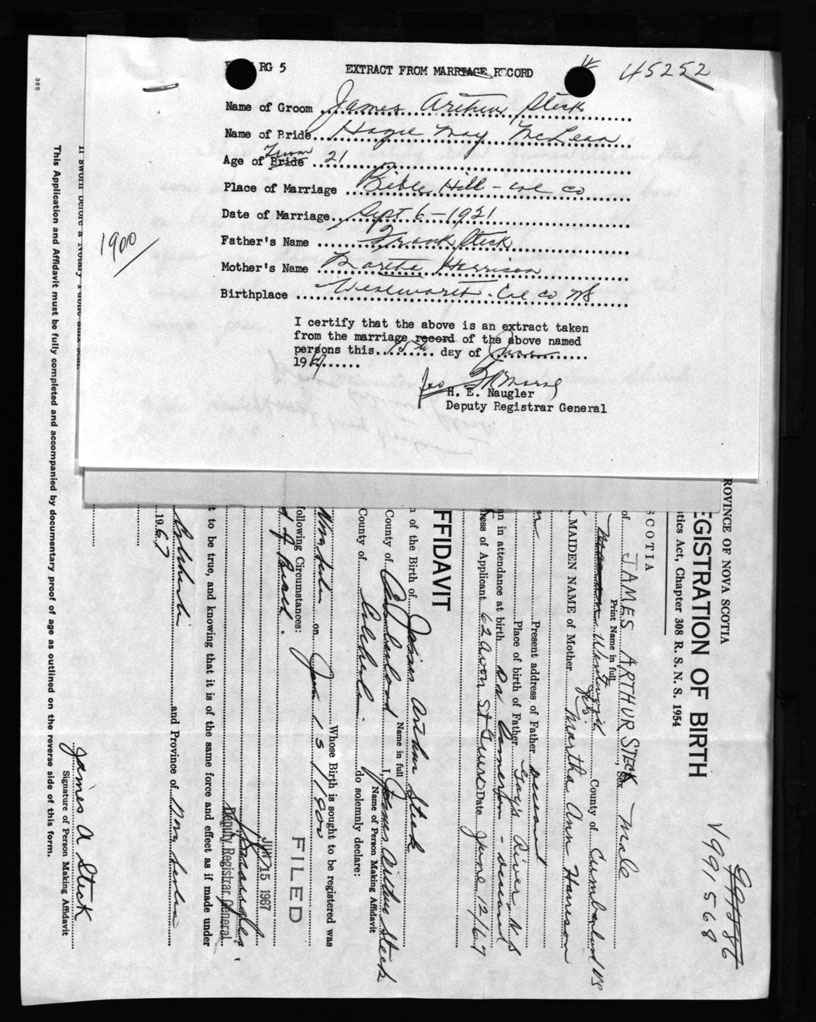 RG 5 EXTRACT FROM MARRIAGE RECORD 45252
Name of Groom James Arthur Steck
Name of Bride May McLean
Age of Bride Groom 21
Place of Marriage Bible Hill - Col Co
Date of Marriage Sept 6 - 1921
Father's Name Frank Steck
Mother's Name Martha Harrison
Birthplace Col Co NS
1900
I certify that the above is an extract taken
from the marriage record of the above named
persons this 15th day of
1967
H. E. Naugler
Deputy Registrar General
385
PROVINCE OF NOVA SCOTIA
REGISTRATION OF BIRTH
Statistics Act, Chapter 308 R. S. N. S. 1954
V991568
SCOTIA
of JAMES ARTHUR STECK Sex male
Print Name in full
County of Cumberland NS
MAIDEN NAME of Mother Martha Ann Harrison
Present address of Father
Place of birth of Father Gay's River, N.S
in attendance at birth Dr Cameron -
of Applicant 62 St Truro Date June 12/67
AFFIDAVIT
of the Birth of James Arthur Steck
Name in full
County of Cumberland I, James Arthur Steck
Name of Person Making Affidavit
County of Colchester do solemnly declare:
Whose Birth is sought to be registered was
Nova Scotia on 1900
following Circumstances:
FILED
JUN 15 1967
Deputy Registrar General
to be true, and knowing that it is of the same force and effect as if made under
Colchester and Province of Nova Scotia
1967
James A Steck
Signature of Person Making Affidavit
This Application and Affidavit must be fully completed and accompanied by documentary proof of age as outlined on the reverse side of this form.